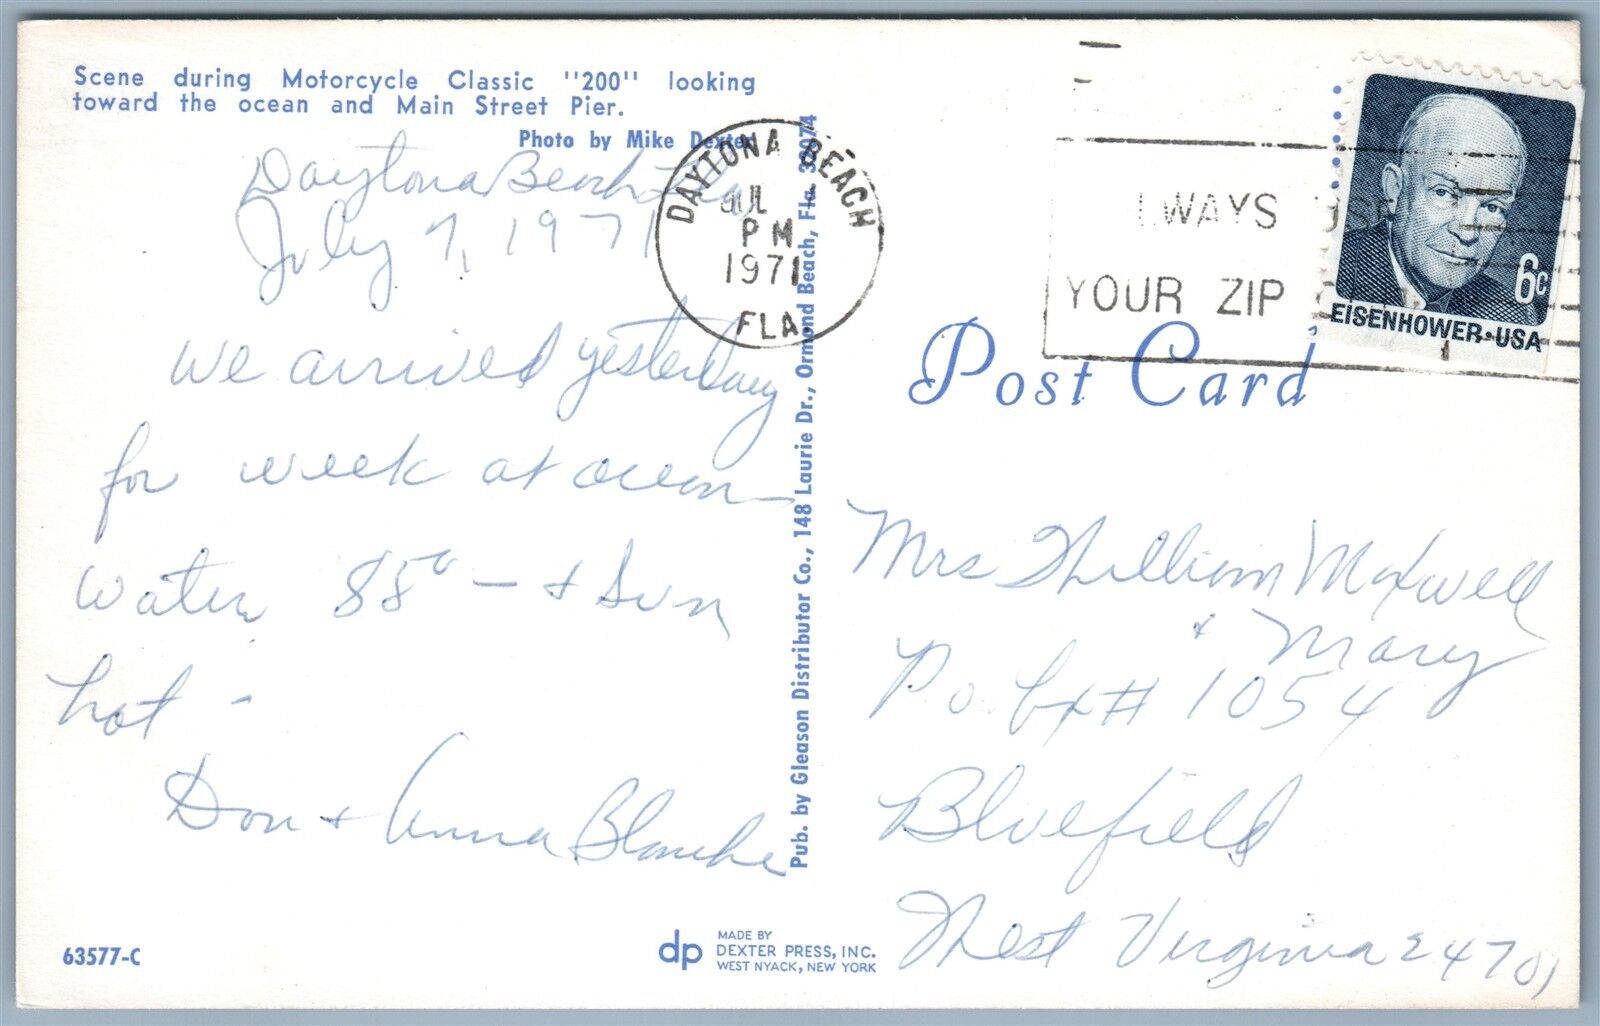 Scene during Motorcycle Classic "200" looking
toward the ocean and Main Street Pier.
Photo by Mike Dexter
Daytona Beach Fla
July 7, 1971
We arrived yesterday
for week at ocean
Water 85° - & Sun
hot -
Don & Anna Blanche
63577-C
Pub. by Gleason Distributor Co., 148 Laurie Dr., Ormond Beach, Fla. 32074
dp
MADE BY
DEXTER PRESS, INC.
WEST NYACK, NEW YORK
DAYTONA BEACH
JUL
PM
1971
FLA.
ALWAYS USE
YOUR ZIP
6c
EISENHOWER·USA
Post Card
Mrs William Maxwell
& Mary
P.O. bx# 1054
Bluefield
West Virginia 24701